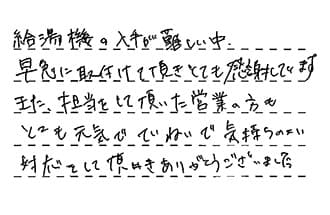 給湯機の入手が難しい中、
早急に取付けて頂きとても感謝してます
また、担当をして頂いた営業の方も
とても元気で ていねいで気持ちのいい
対応をして頂きありがとうございました